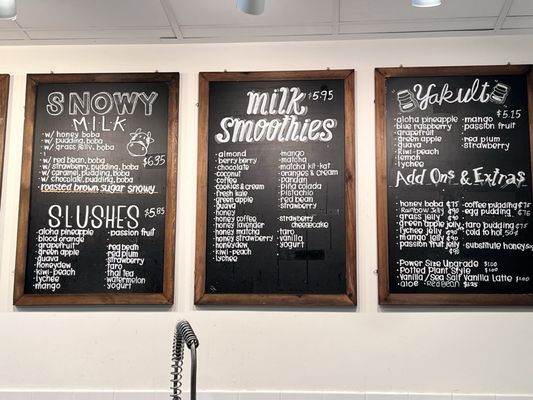 SNOWY
MILK
w/ honey boba
w/ pudding, boba
w/ grass jelly,
w/ red bean, boba
w/ strawberry, pudding, boba
w/ caramel, pudding, boba
w/ chocolate, pudding, boba
$6.35
roasted brown sugar snowy
SLUSHES $5.85
aloha pineapple
blood orange
grapefruit
green apple
guava
honeydew
kiwi-peach
lychee
mango
passion fruit
red bean
red plum
strawberry
taro
thai tea
watermelon
yogurt
milk $5.95
Smoothies
almond
berry berry
chocolate
coconut
coffee
cookies & cream
fresh kale
green apple
guava
honey
honey coffee
honey lavender
honey matcha
honey strawberry
honeydew
kiwi-peach
lychee
mango
matcha
matcha kit-kat
oranges & cream
pandan
piña colada
pistachio
red bean
strawberry
strawberry cheesecake
taro
vanilla
yogurt
Yakult $5.15
aloha pineapple
blue raspberry
grapefruit
green apple
guava
kiwi-peach
lemon
lychee
mango
passion fruit
red plum
strawberry
Add Ons & Extras
honey boba
Rainbow jelly
grass jelly
green apple jelly
lychee jelly
mango jelly
passion fruit jelly
coffee pudding
egg pudding
taro pudding
cold to hot
substitute honey
Power Size Upgrade
Potted Plant Style
Vanilla/Sea Salt Vanilla latte
aloe
Red Bean